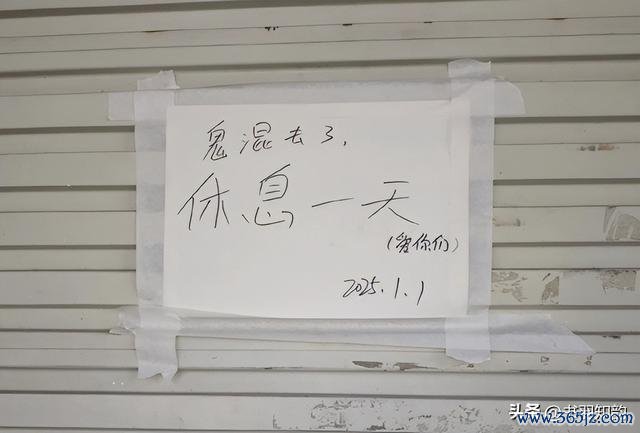 鬼混去了,
休息一天
(爱你们)
2025.1.1
头条 @龙羽知韵
www.365jz.com